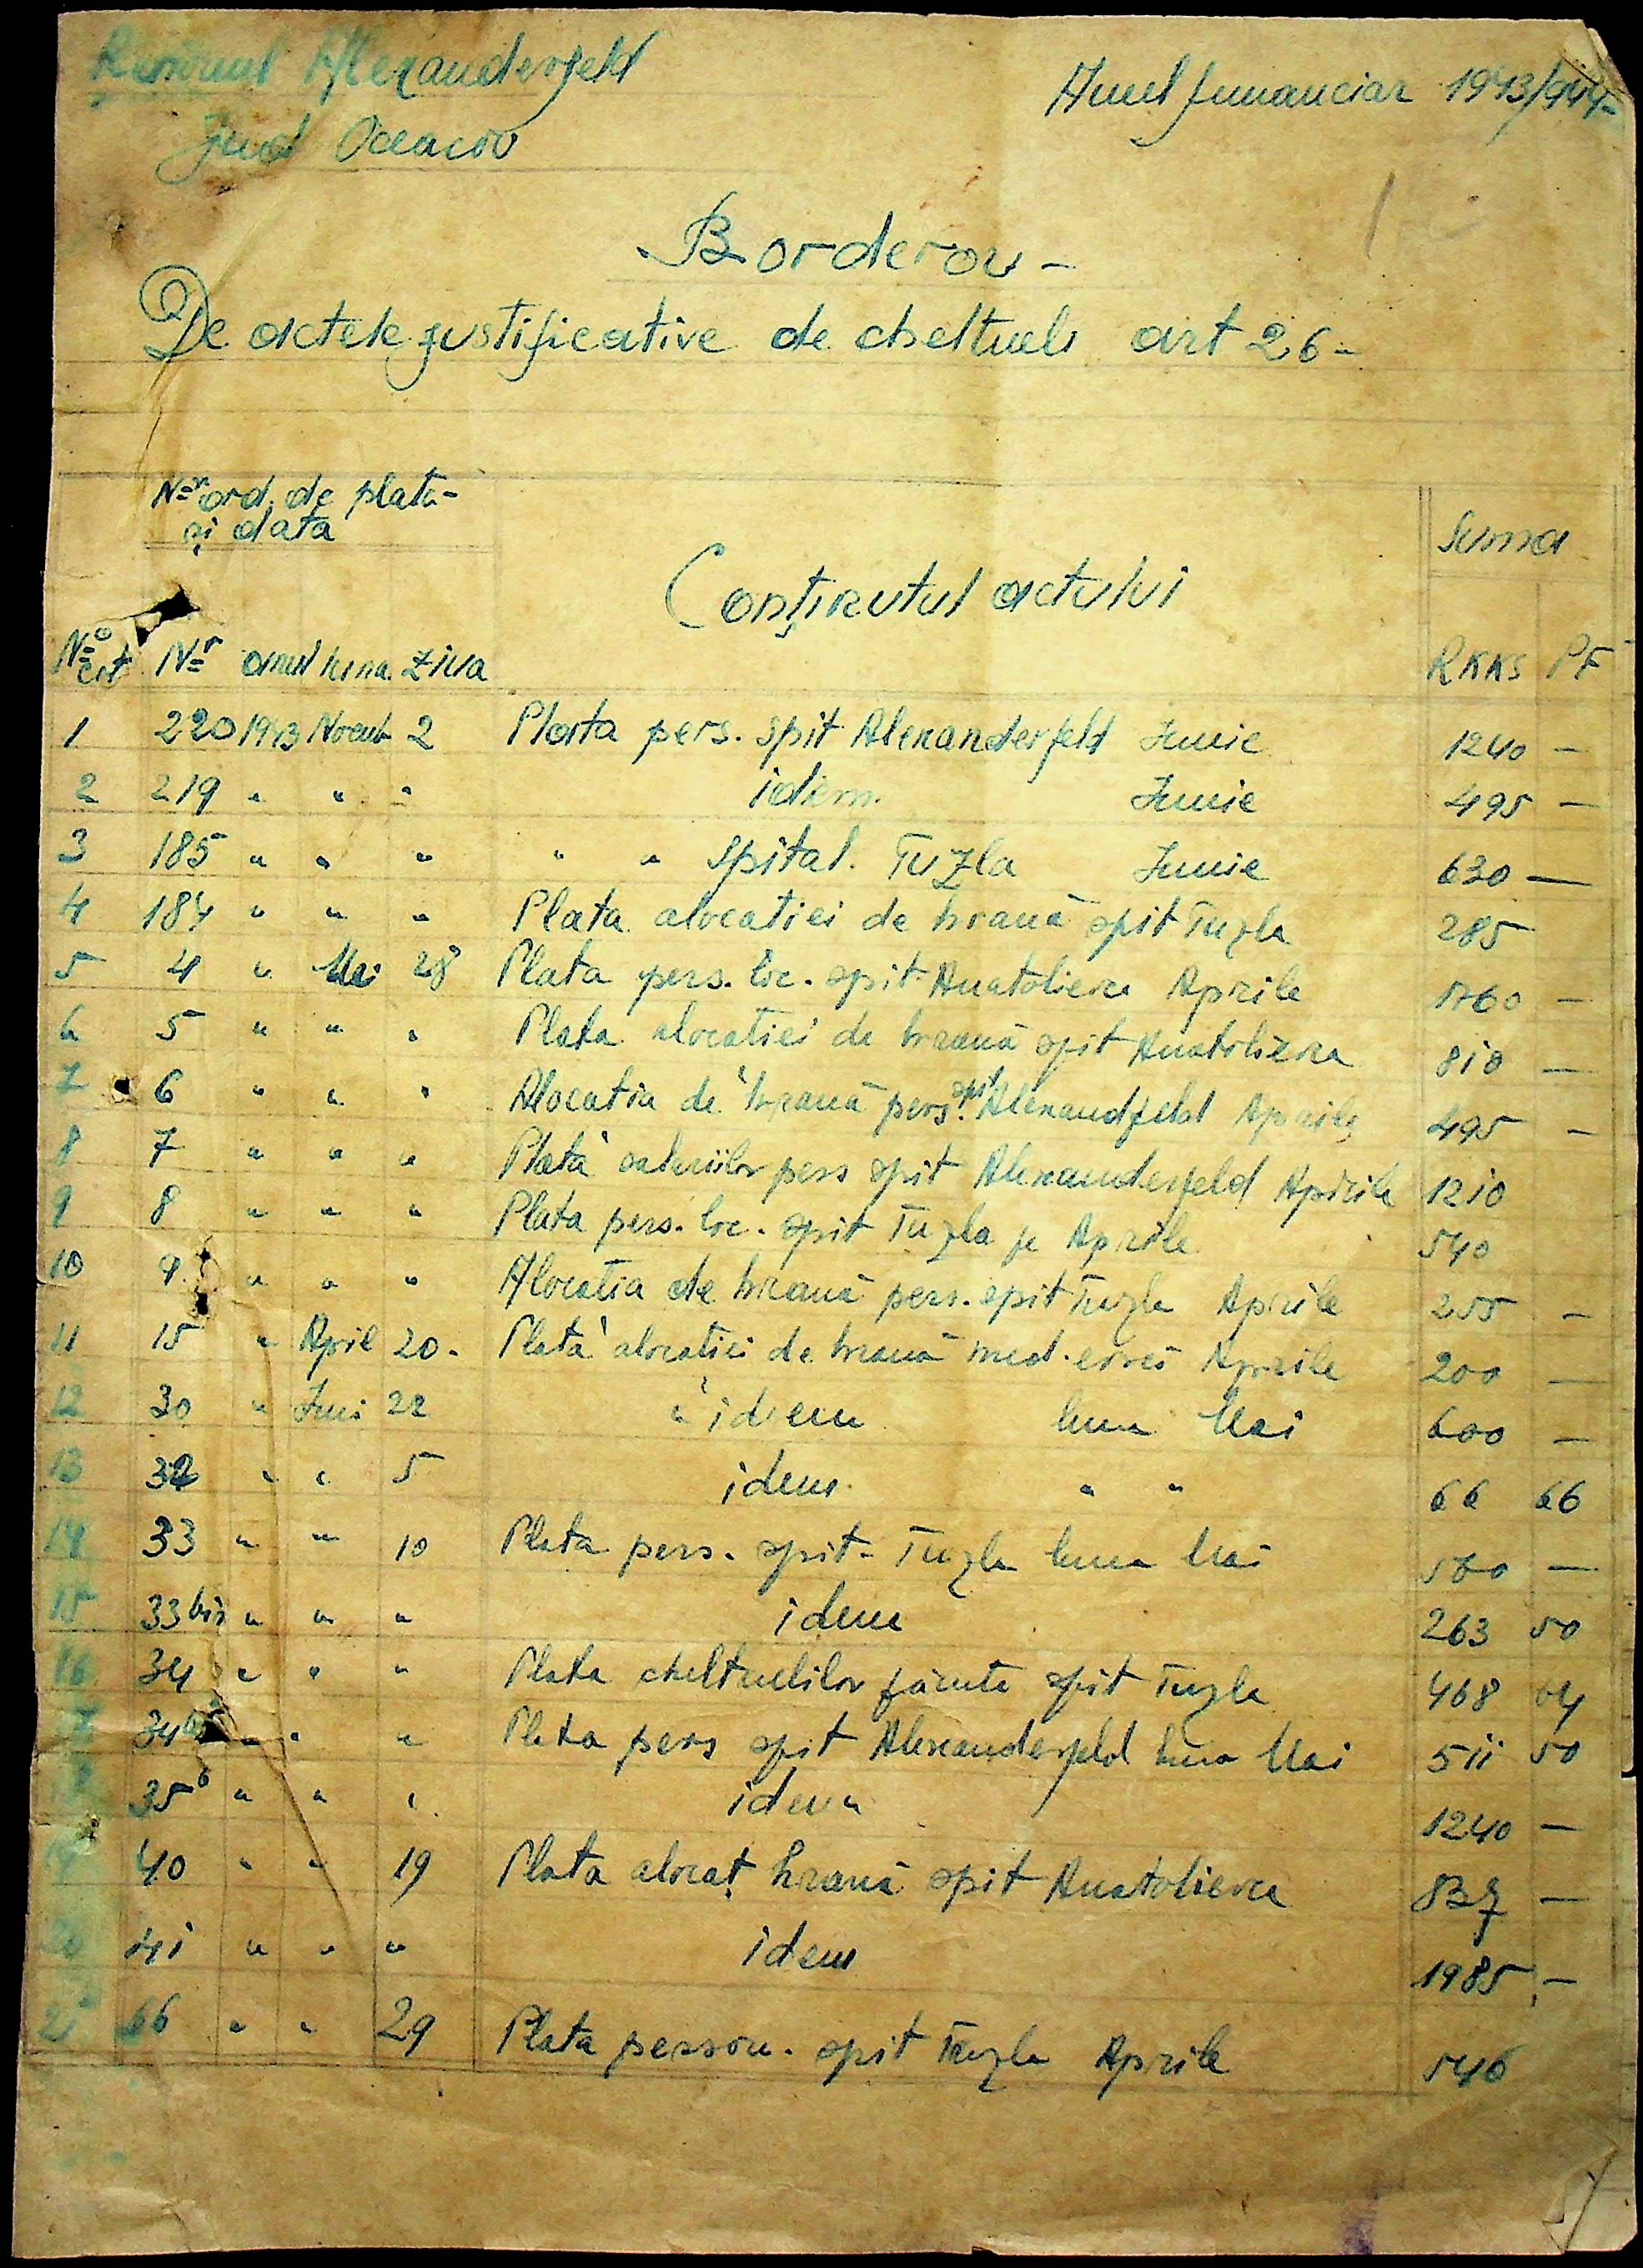 Raionul Alexanderfeld
Jud Oceacov
Anul finanaciar 1943/944-
Borderou -
De actele justificative de cheltueli art 26-
Nr ord. de plata -
și data
Suma
Conținutul actului
No crt Nr anul luna ziua RKKS PF
1 220 1943 Noemb 2 Plata pers. spit Alexanderfeld Iunie 1240 -
2 219 " " " idem. Iunie 495 -
3 185 " " " " " spital. Tuzla Iunie 630 -
4 184 " " " Plata alocatiei de hrană spit Tuzla 285
5 4 " Mai 28 Plata pers. loc. spit Anatolievca Aprile 1760 -
6 5 " " " Plata alocatiei de hrană spit Anatolievca 810 -
7 6 " " " Alocatia de hrană pers. spit Alexandfeld Aprile 495 -
8 7 " " " Plata salariilor pers spit Alexanderfeld Aprile 1210
9 8 " " " Plata pers. loc. spit Tuzla pe Aprile 540
10 9 " " " Alocatia de hrană pers. spit Tuzla Aprile 255 -
11 15 " April 20. Plata alocatiei de hrană med. evrei Aprile 200 -
12 30 " Juni 22 " idem luna Mai 600 -
13 32 " " 5 idem " " 66 66
14 33 " " 10 Plata pers. spit. Tuzla luna Mai 560 -
15 33 bis " " " idem 263 50
16 34 " " " Plata cheltuelilor făcute spit Tuzla 468 04
34 bis " " " Plata pers spit Alexanderfeld luna Mai 511 50
35 b " " " idem 1240 -
40 " " 19 Plata alocaț hrană spit Anatolievca 837 -
20 41 " " " idem 1985,-
21 66 " " 29 Plata person. spit Tuzla Aprile 540